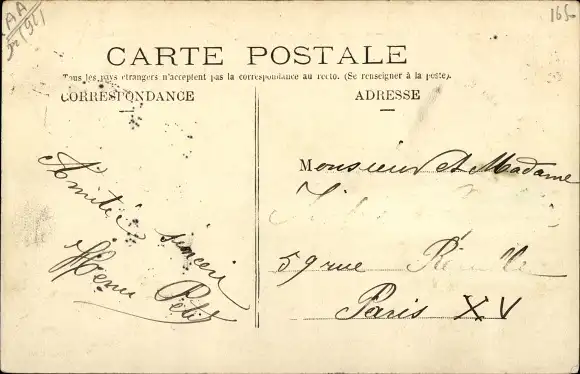 CARTE POSTALE
Tous les pays étrangers n'acceptent pas la correspondance au recto. (Se renseigner à la poste).
CORRESPONDANCE
ADRESSE
165
Amitié sincère
Monsieur et Madame
59 rue
Paris XV